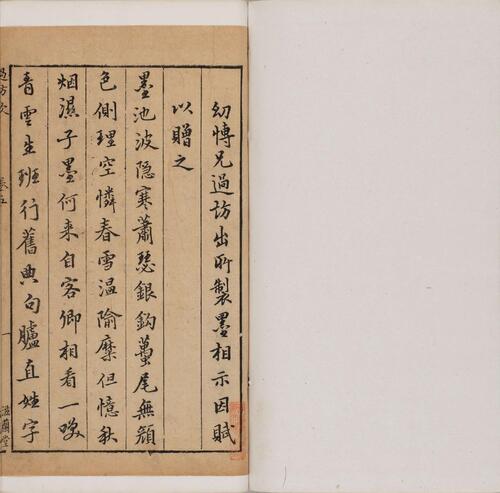 幼博兄過訪出所製墨相示因賦
以贈之
墨池波隐寒蕭瑟銀鈎蠆尾無顔
色側理空憐春雪温隃糜但憶秋
烟濕子墨何来自客卿相看一㗛
青雲生班行舊典句臚直姓字
卷五
一